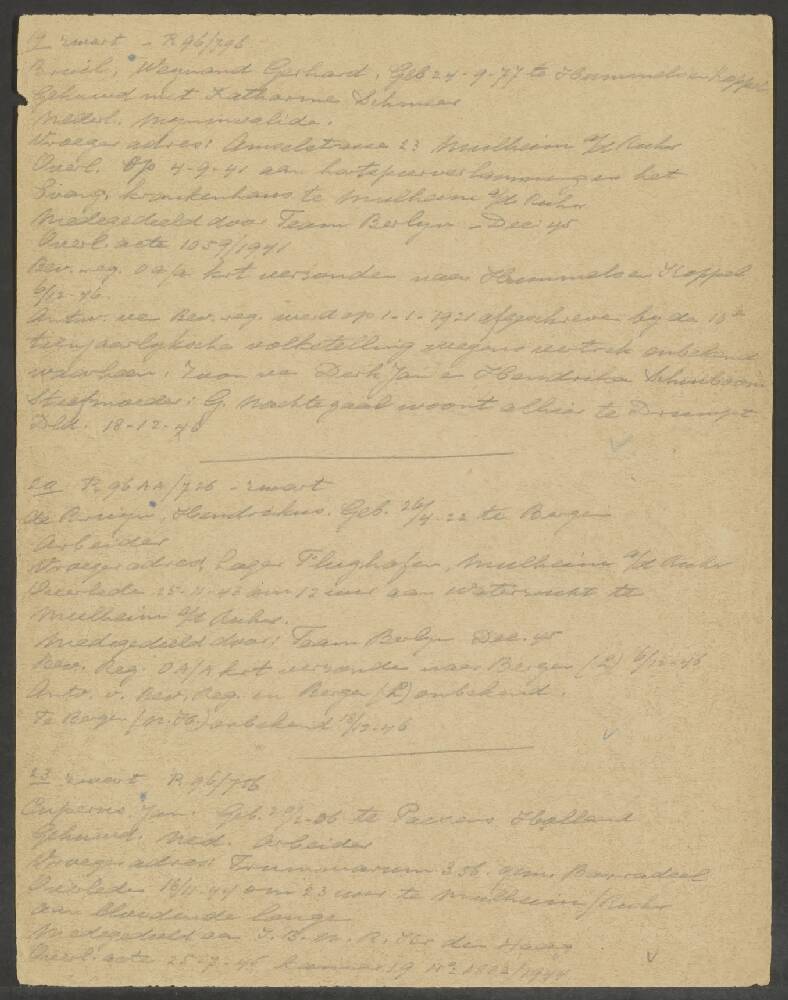 19 zwart - R 96/796
Bruil, Weynand Gerhard, Geb 24-9-77 te Hummelo en Keppel
Gehuwd met Katharine Schmeer
Nederl. Mijninvalide.
Vroeger adres: Amselstrasse 23 Mulheim a/d Ruhr
Overl. op 4-9-41 aan hartspierverlamming in het
Evang. krankenhaus te Mulheim a/d Ruhr
Medegedeeld door Team Berlyn - Dec 45
Overl. acte 1059/1941
Bev. reg. OA/A krt verzonden naar Hummelo en Keppel
6/12-46.
Antw. van Bev. reg. werd op 1-1-1921 afgeschreven by de 10e
tienjaarlyksche volkstelling wegens vertrek onbekend
waarheen. Zoon van Derk Jan en Hendrika Schuiboom
Stiefmoeder: G. Nachtegaal woont alhier te Drempt
Dld. 18-12-46
20 R 96 AA/726 - zwart
de Bruyn, Hendrikus. Geb. 26/4-22 te Bergen
Arbeider
Vroeger adres, Lager Flughafen, Mulheim a/d Ruhr
Overleden 25-11-43 om 12 uur aan Waterzucht te
Mulheim a/d Ruhr.
Medegedeeld door: Team Berlyn Dec. 45
Bev. Reg. OA/A krt verzonden naar Bergen (L) 6/12-46
Antw. v. Bev. Reg. in Bergen (L) onbekend.
Te Bergen (N.H.) onbekend 18/12-46
23 zwart R 96/756
Cuperus, Jan. Geb. 20/2-06 te Paesens Holland
Gehuwd. Ned. Arbeider
Vroeger adres: Trummarum 356. gem. Barradeel
Overleden 16/11-44 om 23 uur te Mulheim/Ruhr
aan bloedende longe
Medegedeeld aan I.B.N.R. Kr der Haag
Overl. acte 25-7-45 kamer 19 No 1802/1944